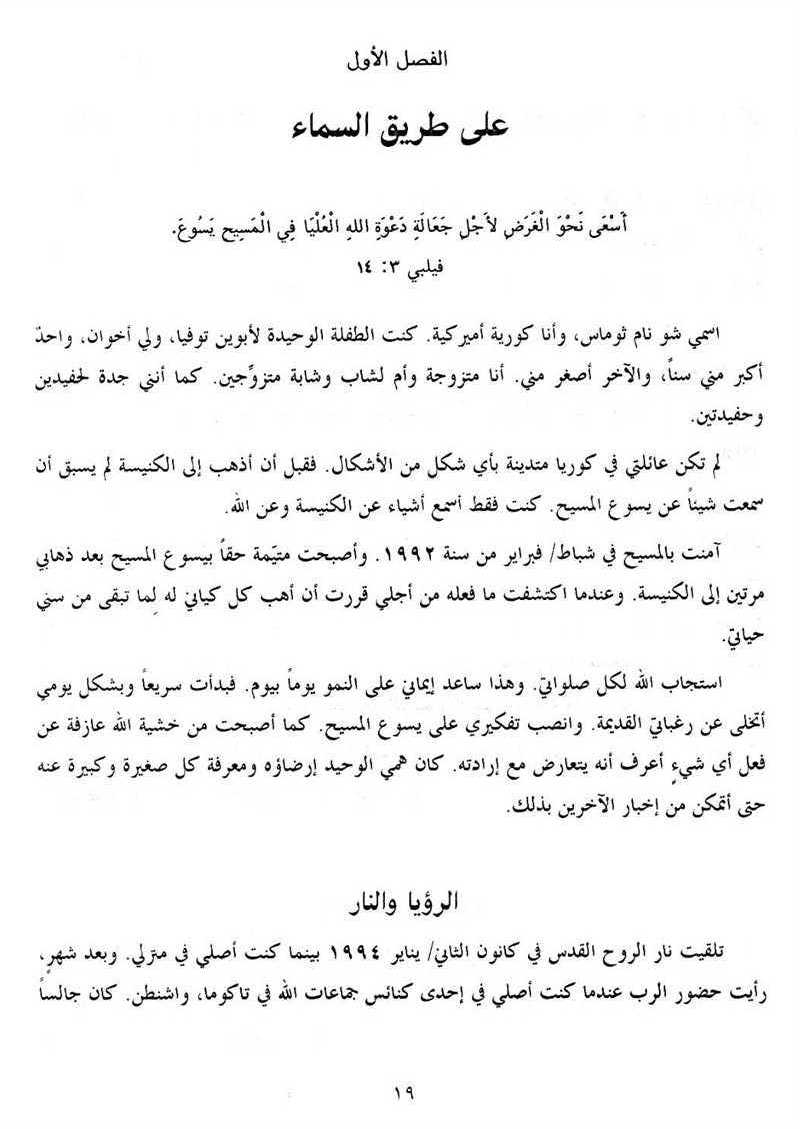 الفصل الأول
على طريق السماء
أَسْعَى نَحْوَ الْغَرَضِ لأَجْلِ جَعَالَةِ دَعْوَةِ اللهِ الْعُلْيَا فِي الْمَسِيحِ يَسُوعَ.
فيلبي ٣: ١٤
اسمي شو نام ثوماس، وأنا كورية أميركية. كنت الطفلة الوحيدة لأبوين توفيا، ولي أخوان، واحدٌ
أكبر مني سناً، والآخر أصغر مني. أنا متزوجة وأم لشاب وشابة متزوِّجين. كما أنني جدة لحفيدين
وحفيدتين.
لم تكن عائلتي في كوريا متدينة بأي شكل من الأشكال. فقبل أن أذهب إلى الكنيسة لم يسبق أن
سمعت شيئاً عن يسوع المسيح. كنت فقط أسمع أشياء عن الكنيسة وعن الله.
آمنت بالمسيح في شباط/ فبراير من سنة ١٩٩٢. وأصبحت متيّمة حقاً بيسوع المسيح بعد ذهابي
مرتين إلى الكنيسة. وعندما اكتشفت ما فعله من أجلي قررت أن أهب كل كياني له لِما تبقى من سني
حياتي.
استجاب الله لكل صلواتي. وهذا ساعد إيماني على النمو يوماً بيوم. فبدأت سريعاً وبشكل يومي
أتخلى عن رغباتي القديمة. وانصب تفكيري على يسوع المسيح. كما أصبحت من خشية الله عازفة عن
فعل أي شيءٍ أعرف أنه يتعارض مع إرادته. كان همي الوحيد إرضاؤه ومعرفة كل صغيرة وكبيرة عنه
حتى أتمكن من إخبار الآخرين بذلك.
الرؤيا والنار
تلقيت نار الروح القدس في كانون الثاني/ يناير ١٩٩٤ بينما كنت أصلي في منزلي. وبعد شهرٍ،
رأيت حضور الرب عندما كنت أصلي في إحدى كنائس جماعات الله في تاكوما، واشنطن. كان جالساً
١٩